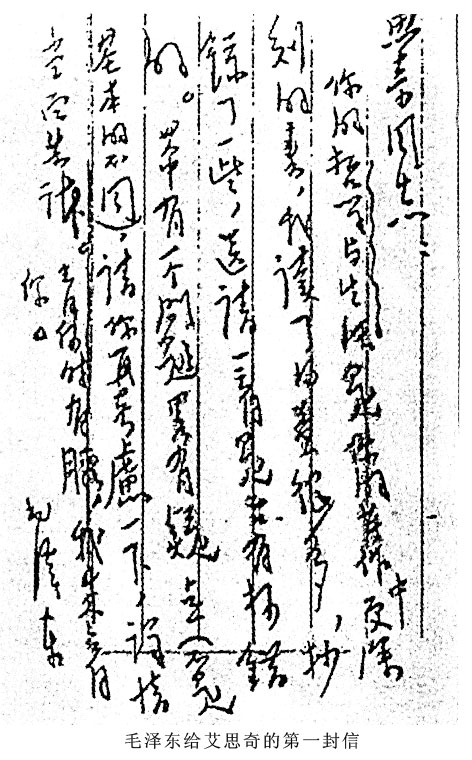 思奇同志：
你的哲学与生活是你的著作中更深
刻的書，我读了得益很多，抄
錄了一些，送请一看是否有抄錯
的。其中有一个问题略有疑点（不是
基本的不同），请你再考慮一下，详情
当面告诉。今日何时有暇，我来看
你。
毛泽东
毛泽东给艾思奇的第一封信